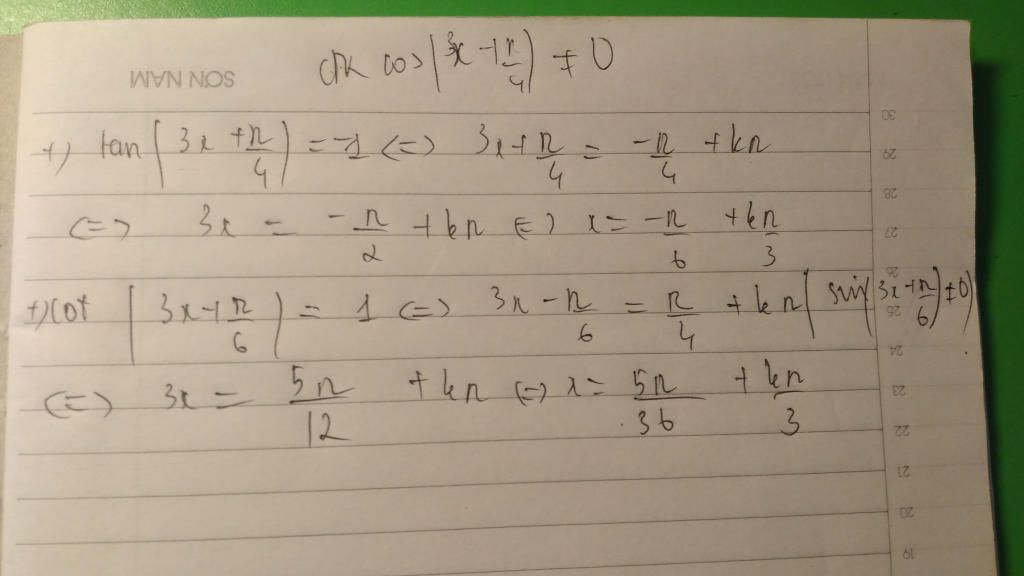 SƠN NAM
đk cos(3x + π/4) ≠ 0
+) tan(3x + π/4) = -1 <=> 3x + π/4 = -π/4 + kπ
<=> 3x = -π/2 + kπ <=> x = -π/6 + kπ/3
+) cot(3x + π/6) = 1 <=> 3x - π/6 = π/4 + kπ (sin(3x + π/6) ≠ 0)
<=> 3x = 5π/12 + kπ <=> x = 5π/36 + kπ/3
30
29
28
27
26
25
24
23
22
21
20
19